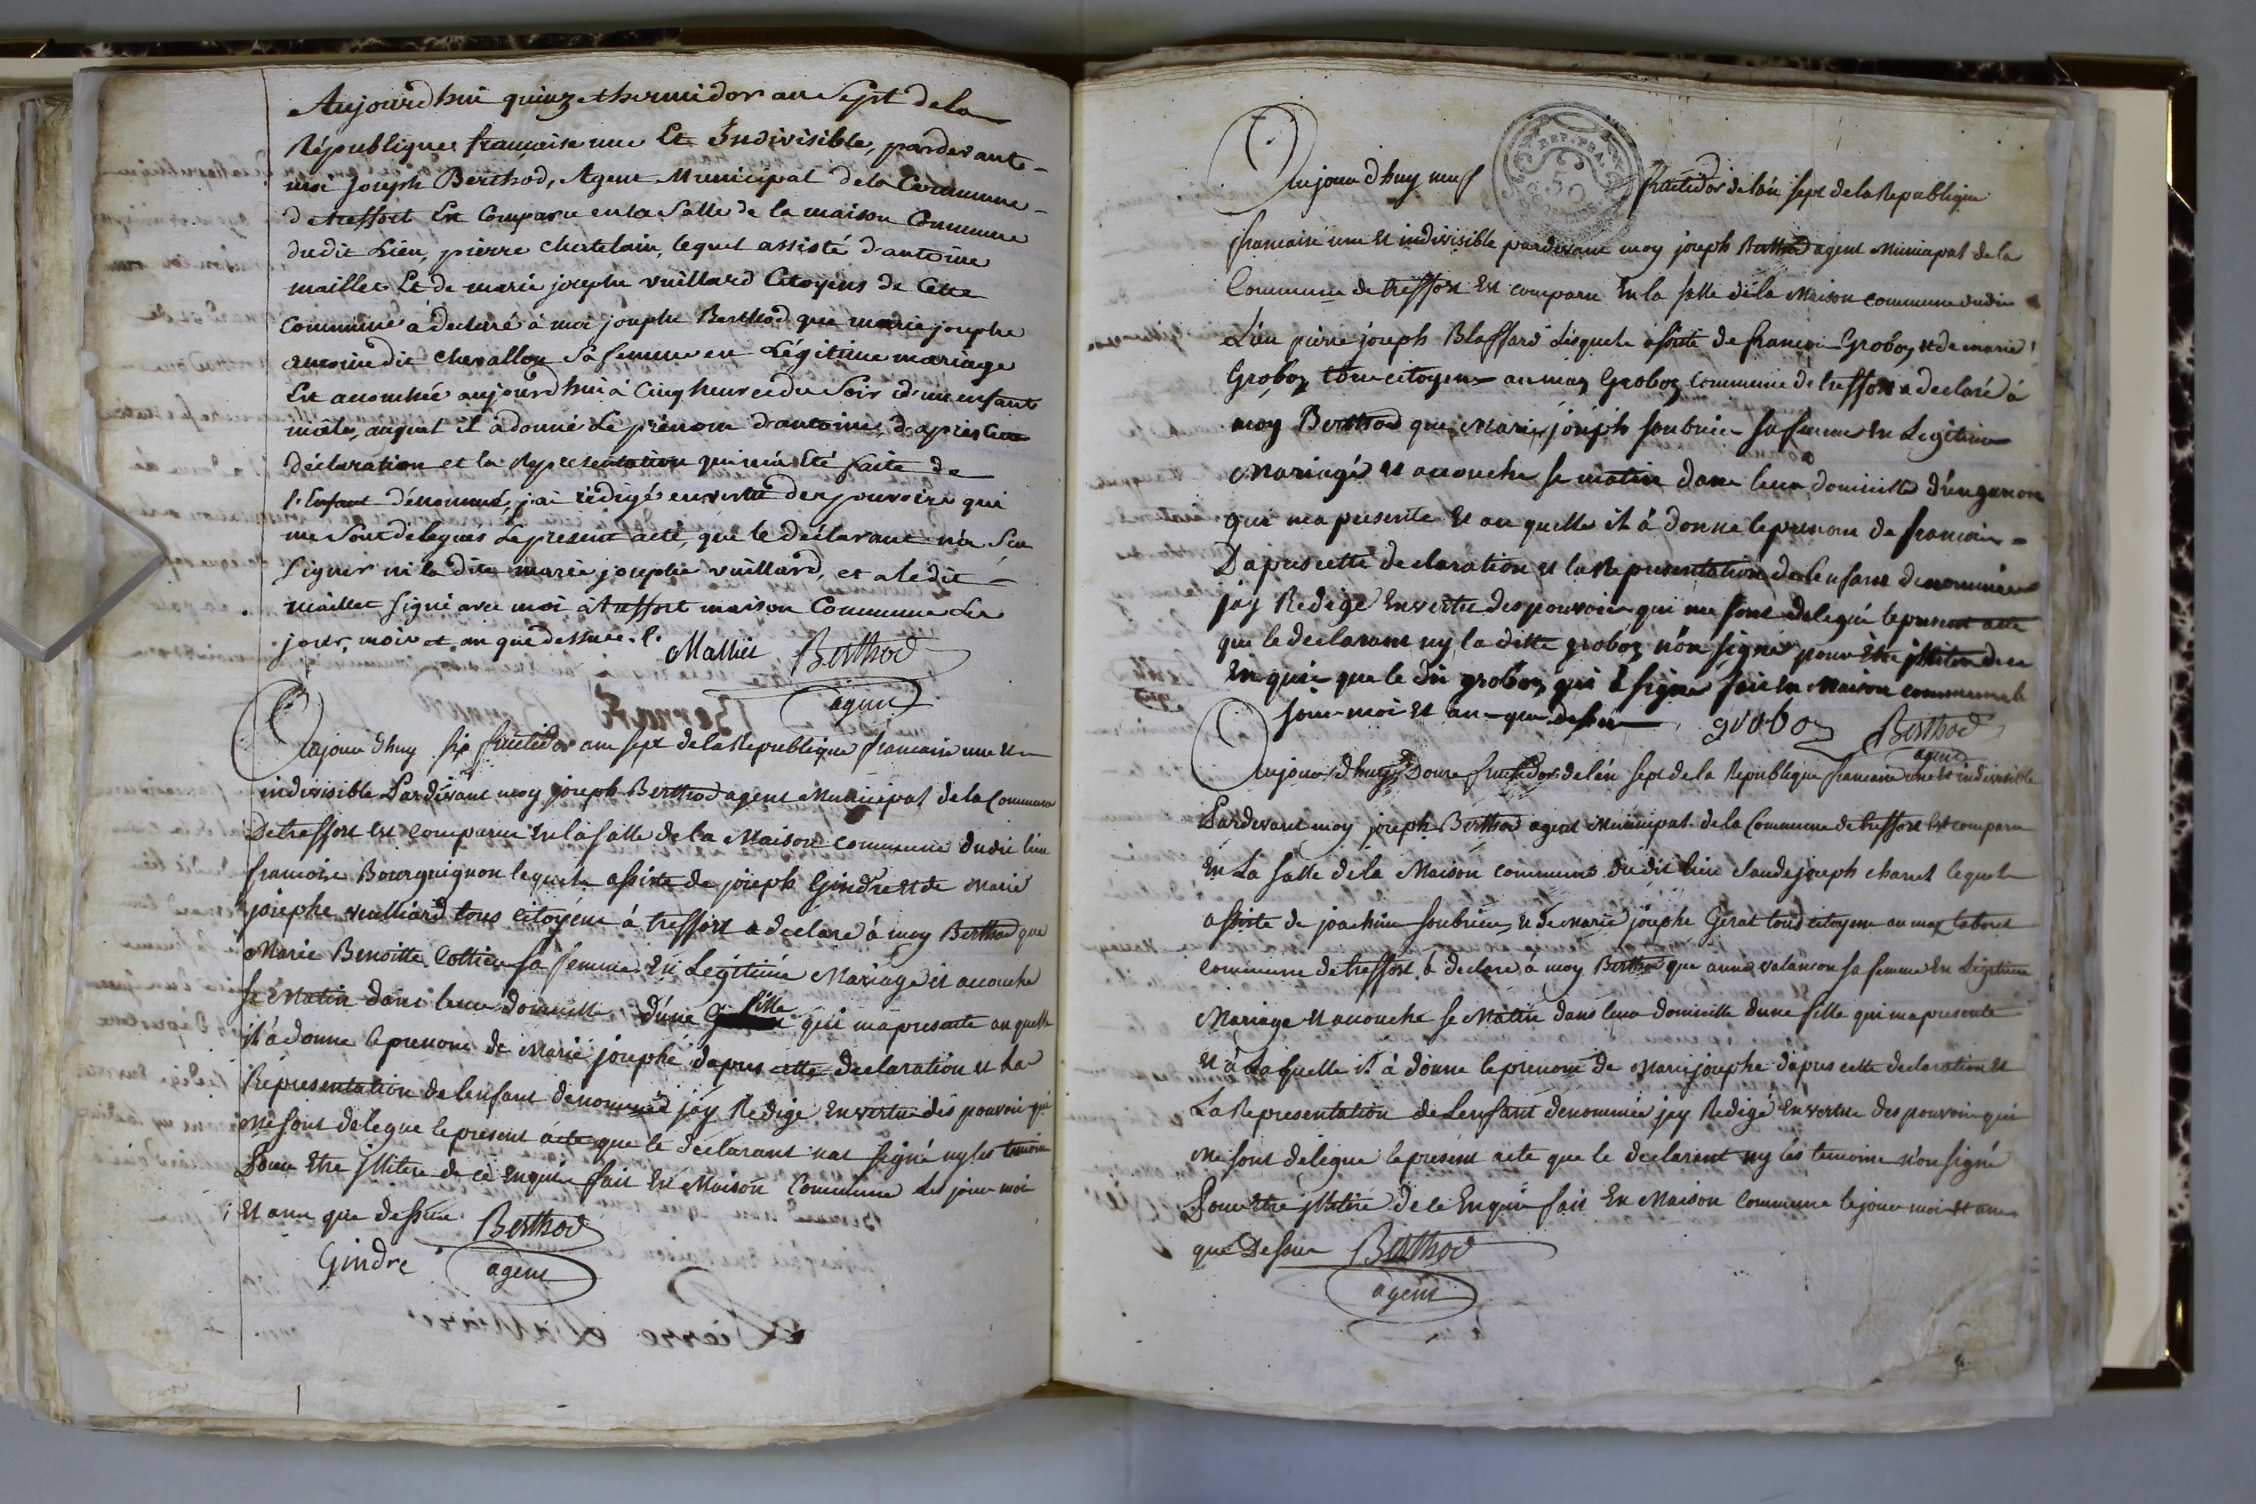 Aujourdhui quinze thermidor an Sept dela
République française une Et Indivisible, pardevant
moi joseph Berthod, Agent Municipal dela Commune
detreffort Est Comparu enla Salle de la maison Commune
dudit Lieu, pierre chatelain, lequel assisté d'antoine
maillet Et de marie josephe vuillard Citoyens de Cette
Commune à declaré à moi josephe Berthod que marie josephe
antoine dit chevallon Sa femme en Légitime mariage
Est accouchée aujourdhui à Cinq heures du Soir d'un enfant
mâle, auquel il à donné Le prénom d'antoine, d'après Cette
déclaration et la Représentation qui m'a Eté faite de
l'Enfant dénommé, j'ai rédigé en vertu des pouvoirs qui
me Sont delegues Le présent acte, que le déclarant n'a Scu
Signer ni la dite marie josephe vuillard, et a ledit
maillet Signé avec moi à treffort maison Commune Les
jour, mois et an que dessus.
Mallié Berthod
agent
Aujour dhuy six fructidor ans sept dela Republique francaise une et
indivisible Pardevant moy joseph Berthod agent Municipal dela Commune
De treffort est comparu En la salle de la Maison commune dudit lieu
francoise Bourguignon lequele assiste de joseph Gindre et de Marie
josephe vuilliard tous citoyens à treffort a declare à moy Berthod que
Marie Benoitte Cottier sa femme En Legitime Mariage et accouche
se Matin dans leur domicille d'une fille qui ma presante au quelle
it à donne le prenom de Marie josephe dapres cette declaration et La
Representation de lenfant denommed jay Redige En vertu des pouvoir qui
Me sont delegue le present acte que le declarant nas signé ny les temoins
Pour Etre jllitere de ce enquis fait En Maison Commune Les jour moi
Et ann que dessus Berthod
Gindre agent
Aujour dhuy neuf fructidor delan sept dela Republique
REP. FRA.
50
francaise une et indivisible pardevant moy joseph Berthod agent Municipal de la
Commune de treffort Est comparu En la salle dela Maison commune dudit
Lieu pierre joseph Blaffard lesquele assiste de francois Groboz et de marie
Groboz tous citoyens au maz Groboz commune de treffort a declaré à
moy Berthod que Marie joseph soubrier sa femme En Legitime
Mariagé et accouche se matin dans leur domicile d'un garcon
qui ma presente Et au quelle it à donne le prenom de francois
Dapres cette declaration et la Representation de lenfant denommée
jay Redigé En vertu des pouvoir qui me sont delegué le present acte
que le declarant ny la ditte groboz n'on signé pour Etre jlliteré de ce
En quis que le dit groboz qui a signé fait en Maison commune le
jour moi et an que dessus groboz Berthod
agent
Aujour dhuy Douze fructidor delan sept de la Republique francaise une et indivisible
Pardevant moy joseph Berthod agent Municipal dela Commune de treffort est comparu
En La salle dela Maison commune du dit lieu Claude joseph charret lequele
assiste de joachim soubrier et de Marie josephe Gerat tous citoyens au max taboret
commune de treffort à declare à moy Berthod que anne valancon sa femme En Legitime
Mariage et accouche se Matin dans leur domicille dune fille qui ma presenté
et à Laquelle it à donne le prenom de Marie josephe dapres cette declaration et
La Representation de Lenfant denommée jay Redigé En vertu des pouvoir qui
Me sont delegue le present acte que le declarant ny les temoins n'on signé
Pour Etre jlliteré de ce Enquis fait En Maison Commune le jour moi et an
que Dessus Berthod
agent